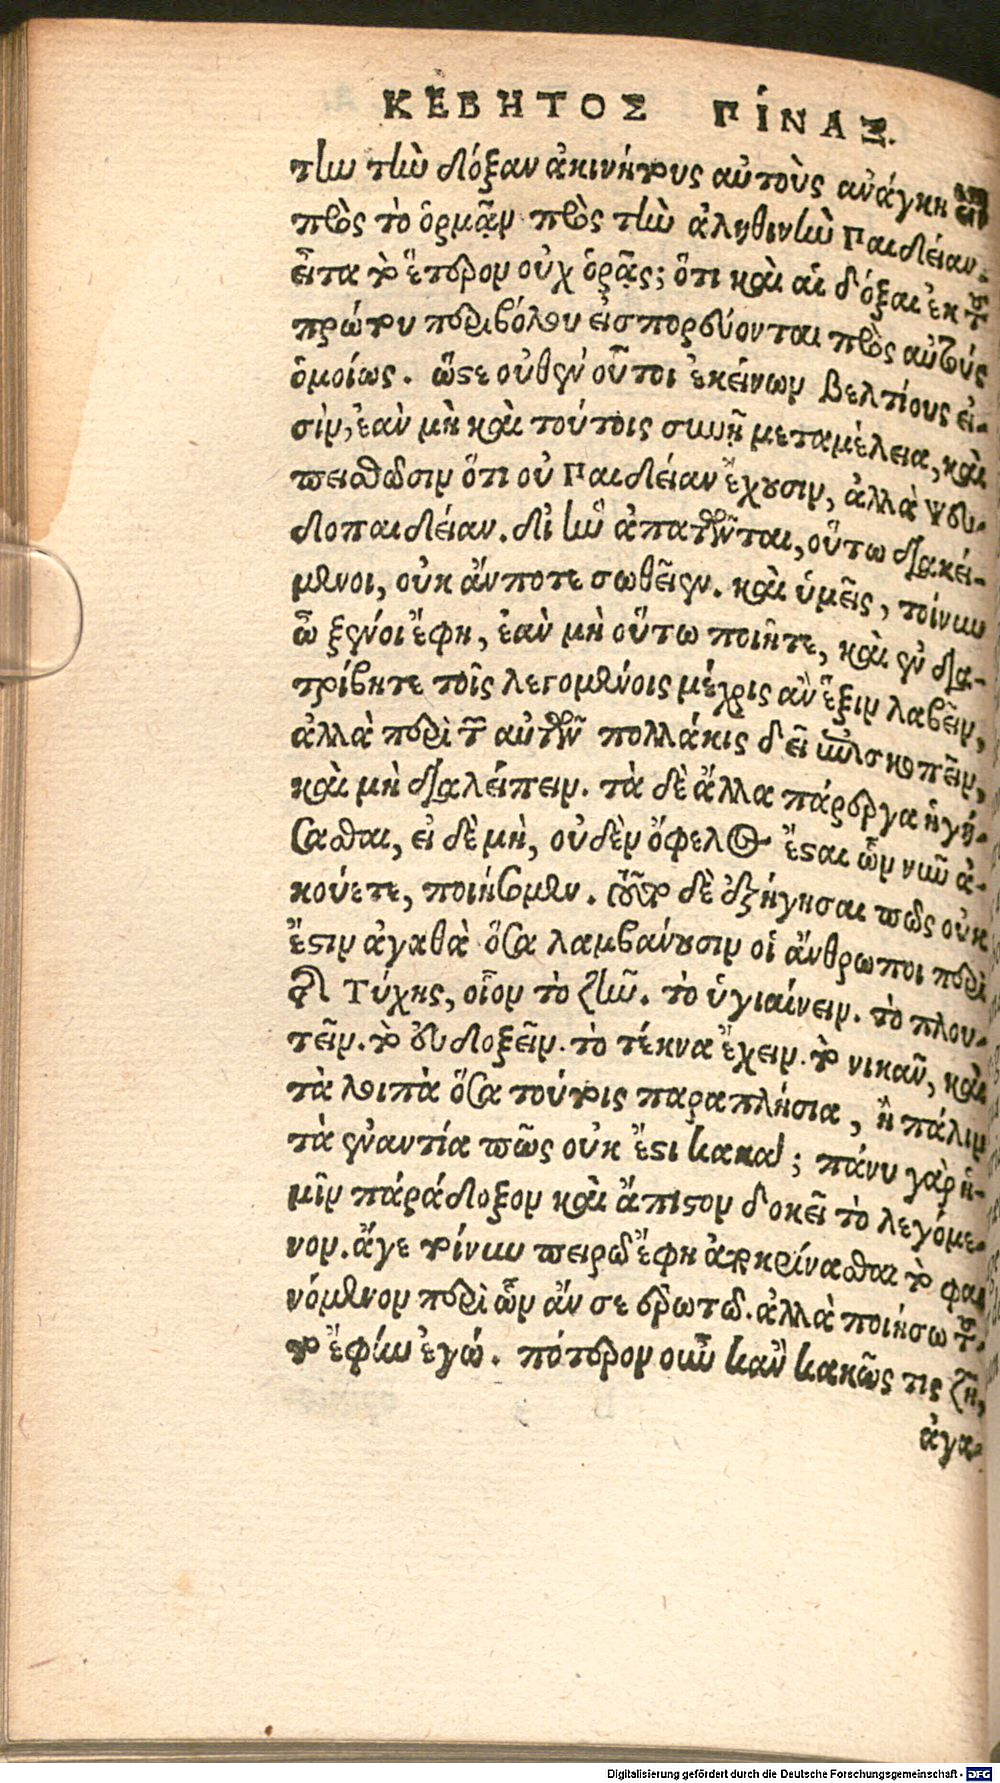 ΚΕΒΗΤΟΣ ΠΙΝΑΞ.
την τὴν δόξαν ἀκινήτους αὐτοὺς ἀνάγκη
πρὸς τὸ ὁρμᾷν πρὸς τὴν ἀληθινὴν Παιδείαν.
εἶτα τὸ ἕτερον οὐχ ὁρᾷς; ὅτι καὶ αἱ δόξαι ἐκ τοῦ
πρώτου περιβόλου εἰσπορεύονται πρὸς αὐτούς
ὁμοίως. ὥστε οὐθὲν οὗτοι ἐκείνων βελτίους εἰ-
σὶν, ἐὰν μὴ καὶ τούτοις συνῇ μεταμέλεια, καὶ
πεισθῶσιν ὅτι οὐ Παιδείαν ἔχουσιν, ἀλλὰ ψευ-
δοπαιδείαν. δι’ ἣν ἀπατῶνται, οὕτω διακεί-
μενοι, οὐκ ἄν ποτε σωθεῖεν. καὶ ὑμεῖς, τοίνυν
ὦ ξένοι ἔφη, ἐὰν μὴ οὕτω ποιῆτε, καὶ ἐν δια-
τρίβητε τοῖς λεγομένοις μέχρις ἂν ἕξιν λαβεῖν,
ἀλλὰ περὶ τῶν αὐτῶν πολλάκις δεῖ ἐπισκοπεῖν,
καὶ μὴ διαλείπειν. τὰ δὲ ἄλλα πάρεργα ἡγή-
σασθαι, εἰ δὲ μὴ, οὐδὲν ὄφελος ἔσται ὧν νῦν ἀ-
κούετε, ποιήσομεν. τοῦτο δὲ ἐξήγησαι πῶς οὐκ
ἔστιν ἀγαθὰ ὅσα λαμβάνουσιν οἱ ἄνθρωποι περὶ
τῆς Τύχης, οἷον τὸ ζῆν. τὸ ὑγιαίνειν. τὸ πλου-
τεῖν. τὸ εὐδοξεῖν. τὸ τέκνα ἔχειν. τὸ νικᾶν, καὶ
τὰ λοιπὰ ὅσα τούτοις παραπλήσια, ἢ πάλιν
τὰ ἐναντία πῶς οὐκ ἔστι κακά; πάνυ γὰρ ἡ-
μῖν παράδοξον καὶ ἄπιστον δοκεῖ τὸ λεγόμε-
νον. ἄγε τοίνυν πειρῶ ἔφη ἀποκρίνασθαι τὸ φαι
νόμενον περὶ ὧν ἄν σε ἐρωτῶ. ἀλλὰ ποιήσω τοῦ-
το ἔφην ἐγώ. πότερον οὖν κἂν κακῶς τις ζῇ,
ἀγα-
Digitalisierung gefördert durch die Deutsche Forschungsgemeinschaft - DFG